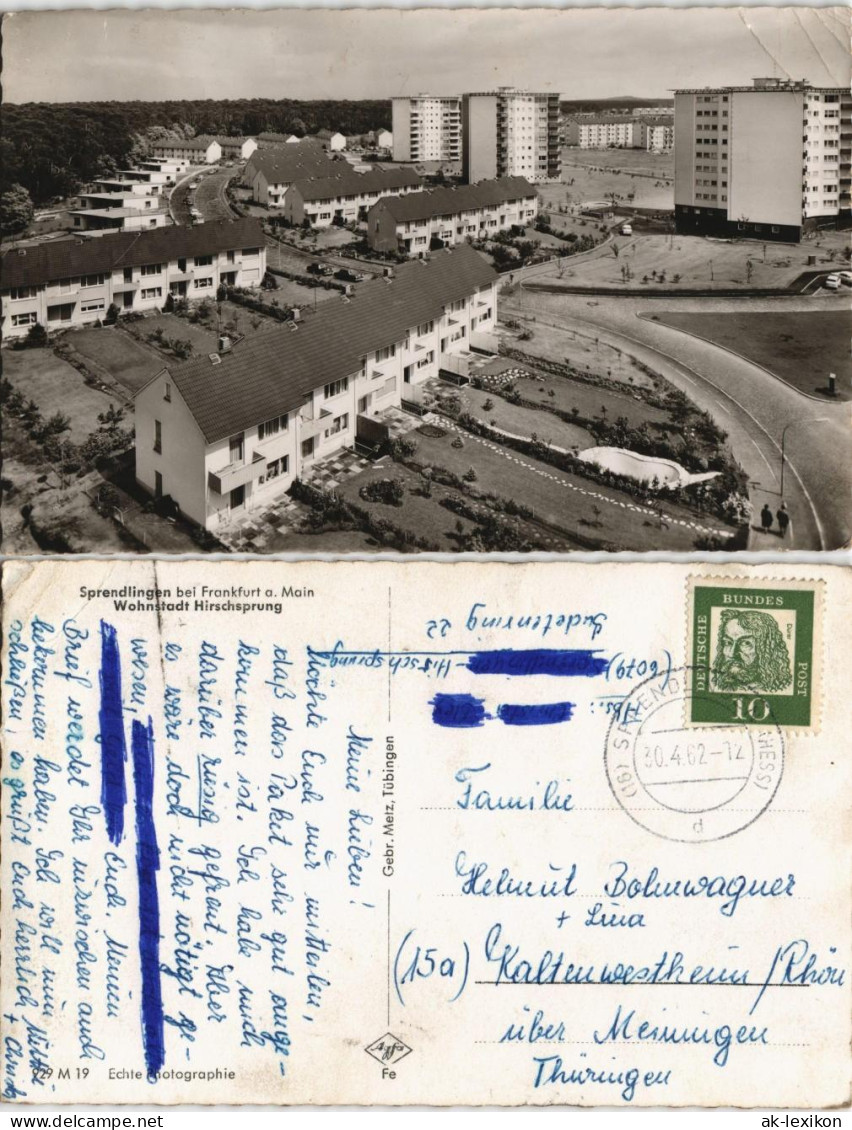 Sprendlingen bei Frankfurt a. Main
Wohnstadt Hirschsprung
Meine Lieben!
Möchte Euch nur mitteilen,
daß das Paket sehr gut ange-
kommen ist. Ich habe mich
darüber riesig gefreut. Aber
es wäre doch nicht nötigt ge-
wesen,
Euch. Meinen
Brief werdet Ihr inzwischen auch
bekommen haben. Ich will nun
schließen, es grüßt Euch herzlich
+
929 M 19 Echte Photographie
Gebr. Metz, Tübingen
Agfa
Fe
Abs.:
(6079) - Hirschsprung
Sudetenring 22
DEUTSCHE BUNDES POST
Dürer
10
(16) SPRENDL HESS)
30.4.62-12
d
Familie
Helmut Bohnwagner
+ Lina
(15a) Kaltenwestheim/Rhön
über Meiningen
Thüringen
ak-lexikon
ak-lexikon.com